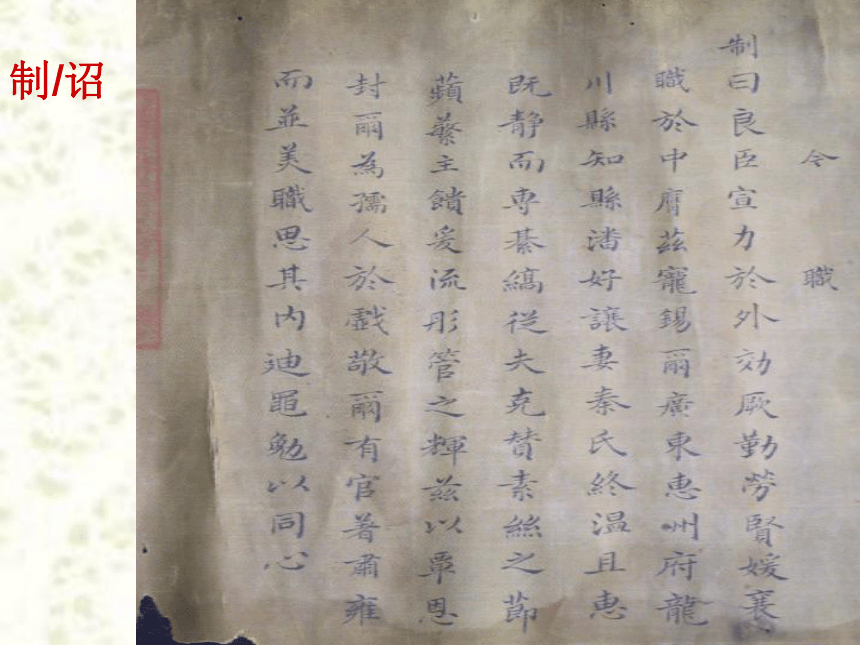 制/诏
令職
制曰良臣宣力於外効厥勤勞賢媛襄
職於中膺茲寵錫爾廣東惠州府龍
川縣知縣潘好讓妻秦氏終温且惠
既静而專綦縞従夫克賛素絲之節
蘋蘩主饋爰流彤管之輝兹以覃恩
封爾為孺人於戲敬爾有官著肅雍
而並美職思其内迪黽勉以同心